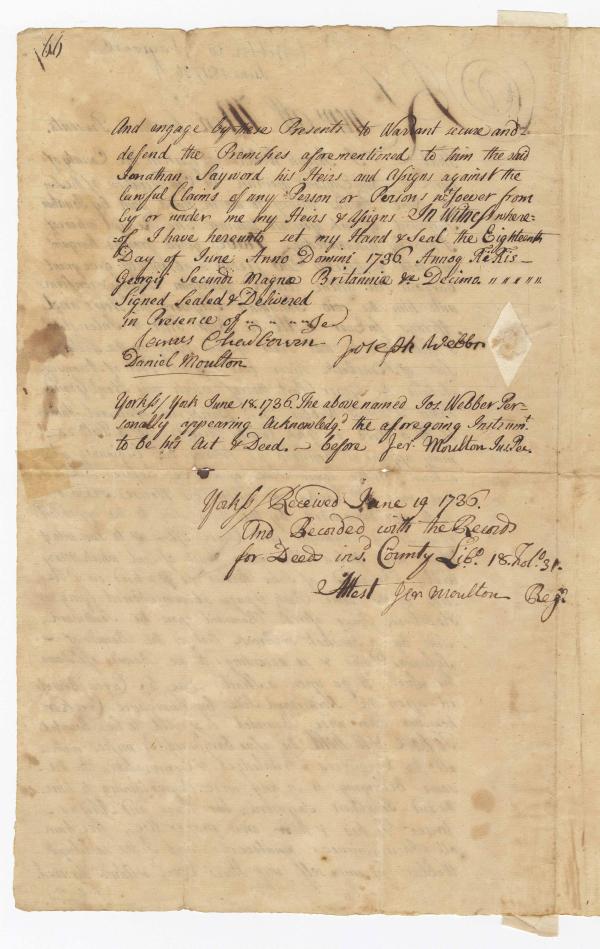 And engage by these Presents to Warrant secure and
defend the Premisses aforementioned to him the said
Jonathan Sayword his Heirs and Assigns against the
lawful Claims of any Person or Persons wt.soever from
by or under me my Heirs & Assigns In Witness where=
=of I have hereunto set my Hand & Seal the Eighteenth
Day of June Anno Domini 1736. Annoq RRis
Georgij Secundi Magnæ Britanniæ &c Decimo. " " " " "
Signed Sealed & Delivered
in Presence of " " " "
Joseph Webber
Daniel Moulton
York ss/ York June 18. 1736. The above named Jos. Webber Per=
sonally appearing Acknowledgd. the aforegoing Instrumt.
to be his Act & Deed. — before Jer. Moulton Jus. Pea.
York ss/ Received June 19 1736.
And Recorded with the Records
for Deeds in sd. County Libo. 18. Folo. 31.
Attest Jer Moulton Regr.